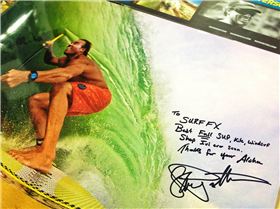 To
SURF FX
Best Full SUP, Kite, Windsurf
Shop I've ever seen.
Thanks for your Aloha